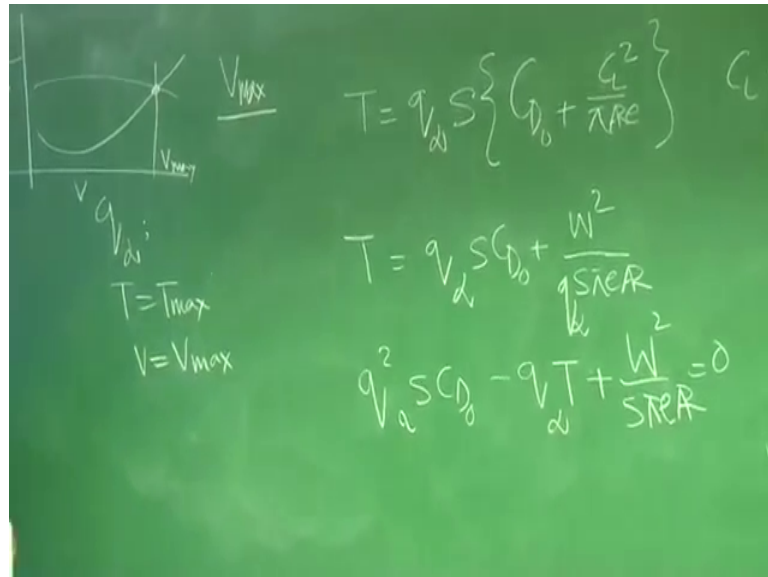 V_max
V_max
V
q_α;
T = T_max
V = V_max
T = q_α S { C_{D_0} + C_L^2 / πARe } C_L
T = q_α S C_{D_0} + W^2 / q_α S π e AR
q_α^2 S C_{D_0} - q_α T + W^2 / S π e AR = 0